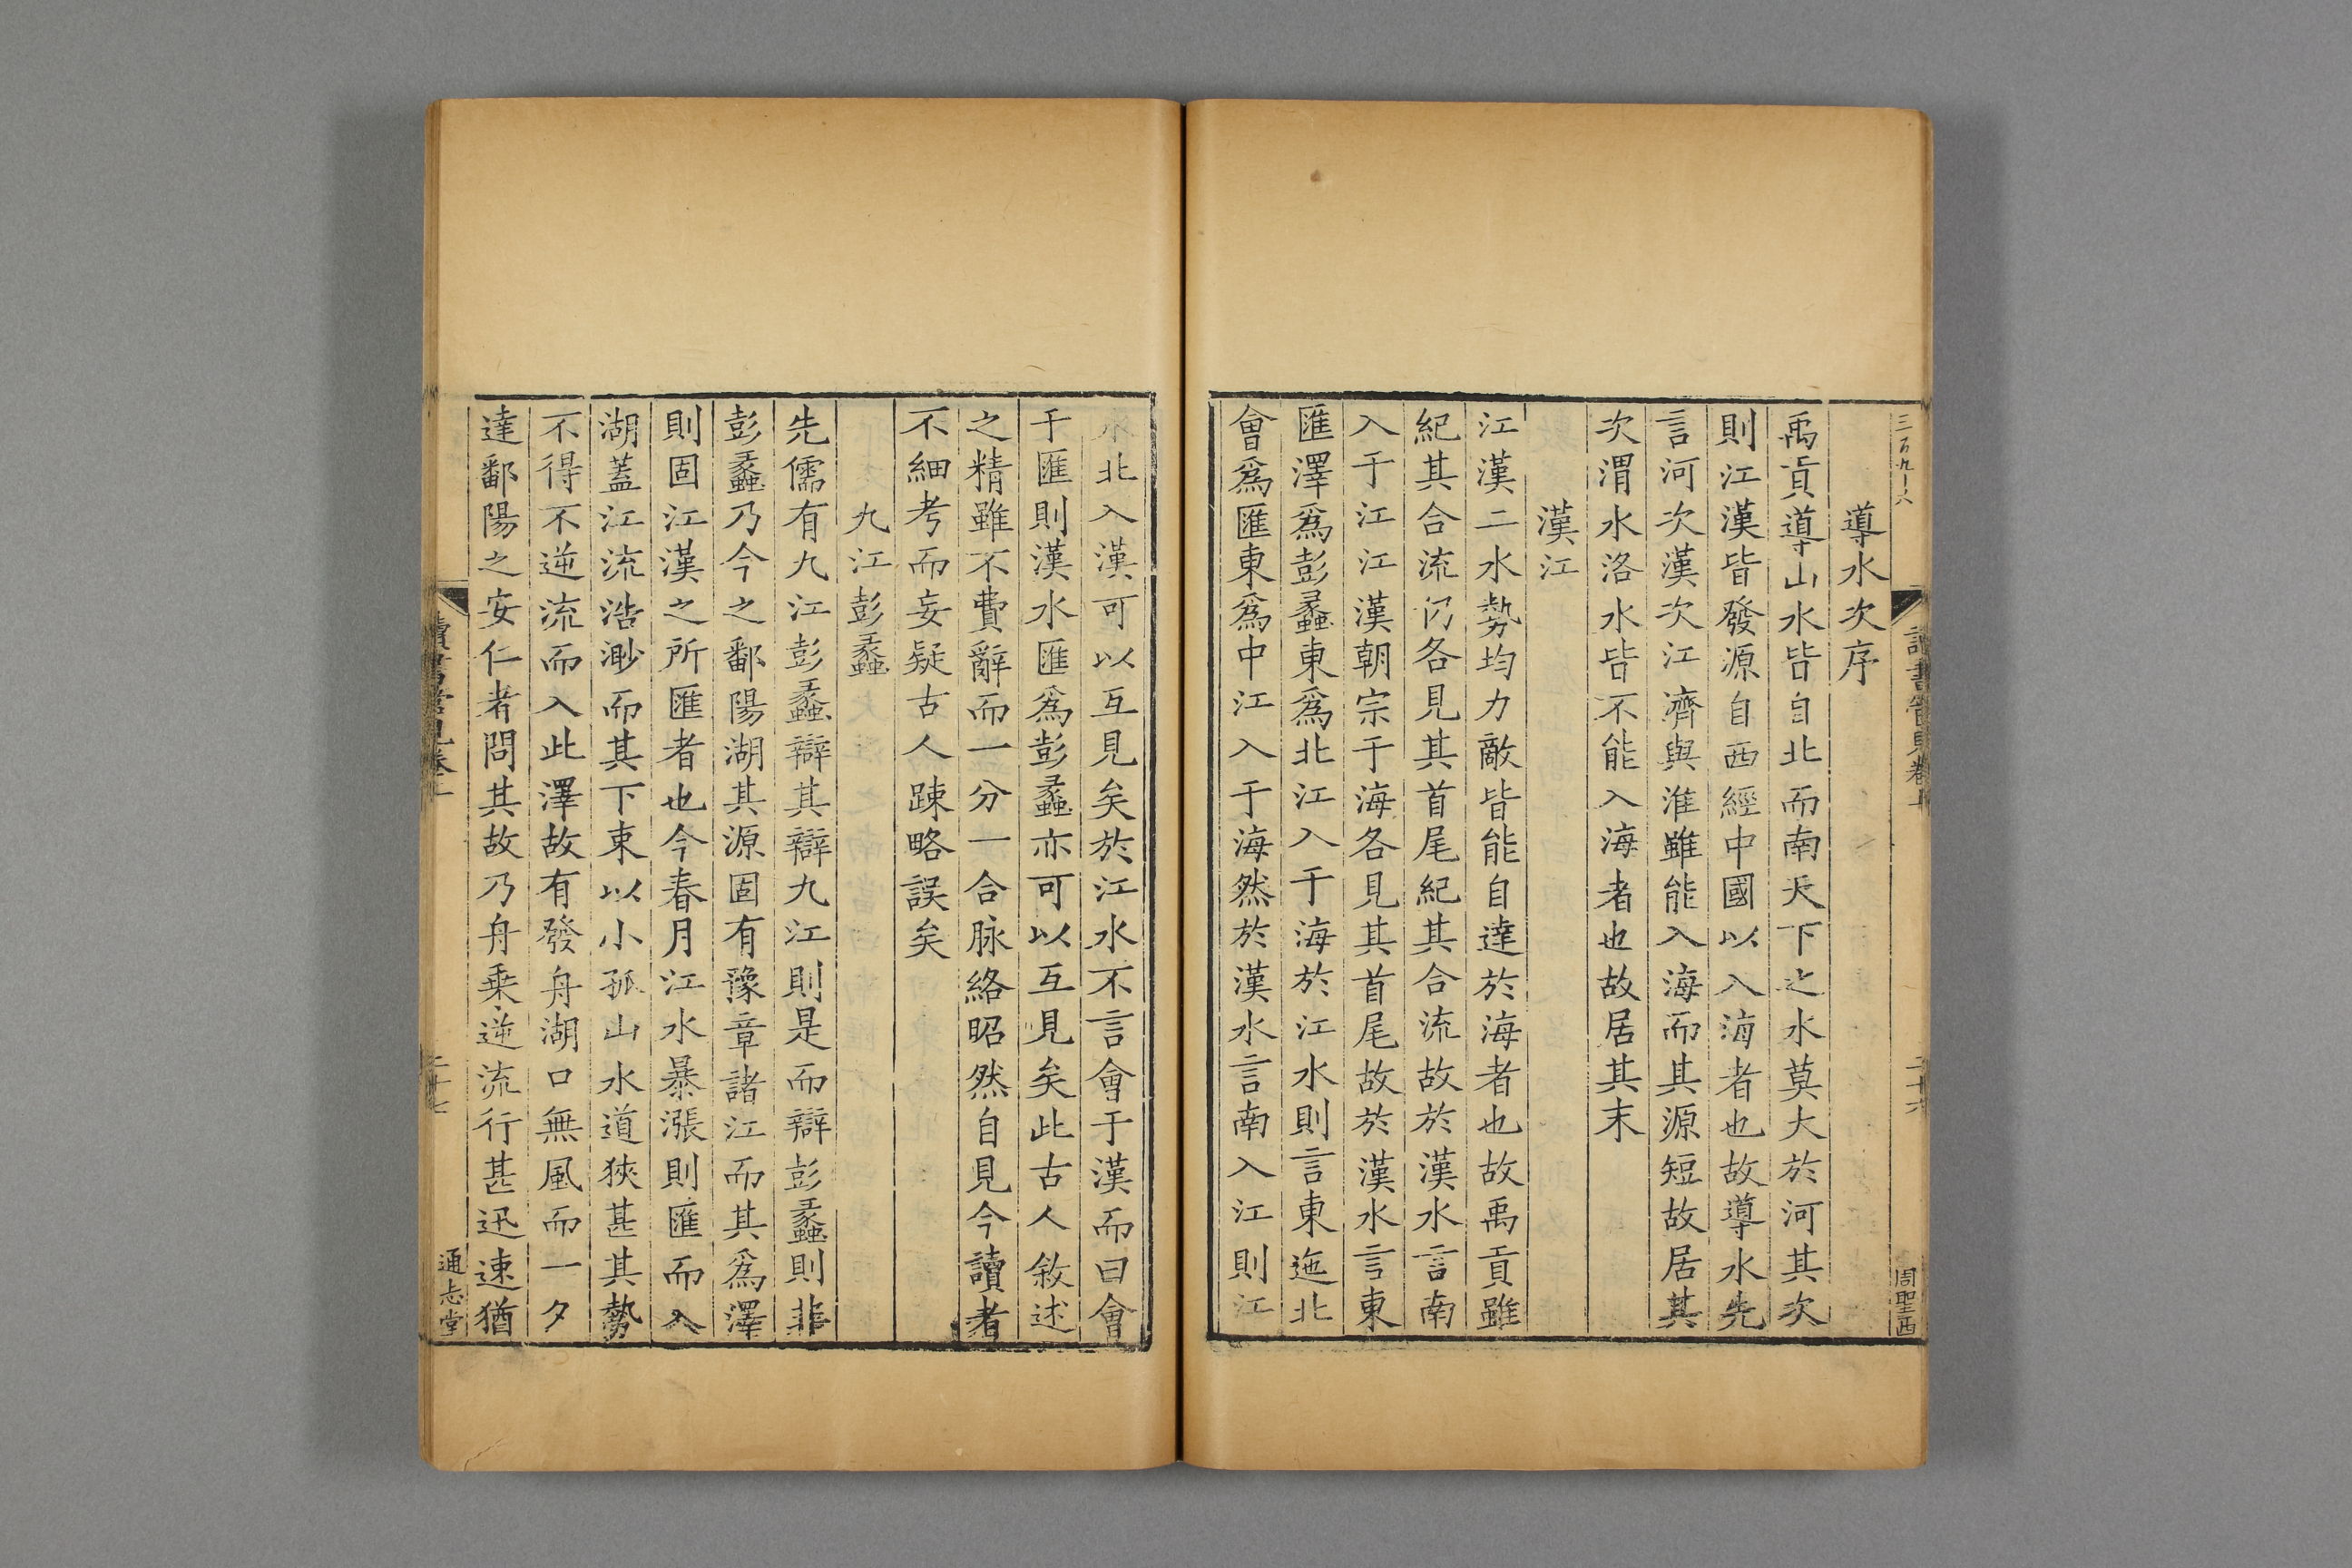 三百九十六
讀書管見卷上
二十六
周聖西
導水次序
禹貢導山水皆自北而南天下之水莫大於河其次
則江漢皆發源自西經中國以入海者也故導水先
言河次漢次江濟與淮雖能入海而其源短故居其
次渭水洛水皆不能入海者也故居其末
漢江
江漢二水勢均力敵皆能自達於海者也故禹貢雖
紀其合流仍各見其首尾紀其合流故於漢水言南
入于江江漢朝宗于海各見其首尾故於漢水言東
匯澤爲彭蠡東爲北江入于海於江水則言東迤北
會爲匯東爲中江入于海然於漢水言南入江則江
水北入漢可以互見矣於江水不言會于漢而曰會
于匯則漢水匯爲彭蠡亦可以互見矣此古人敘述
之精雖不費辭而一分一合脉絡昭然自見今讀者
不細考而妄疑古人踈略誤矣
九江彭蠡
先儒有九江彭蠡辯其辯九江則是而辯彭蠡則非
彭蠡乃今之鄱陽湖其源固有豫章諸江而其爲澤
則固江漢之所匯者也今春月江水暴漲則匯而入
湖蓋江流浩渺而其下束以小孤山水道狹甚其勢
不得不逆流而入此澤故有發舟湖口無風而一夕
達鄱陽之安仁者問其故乃舟乗逆流行甚迅速猶
讀書管見卷上
二十七
通志堂